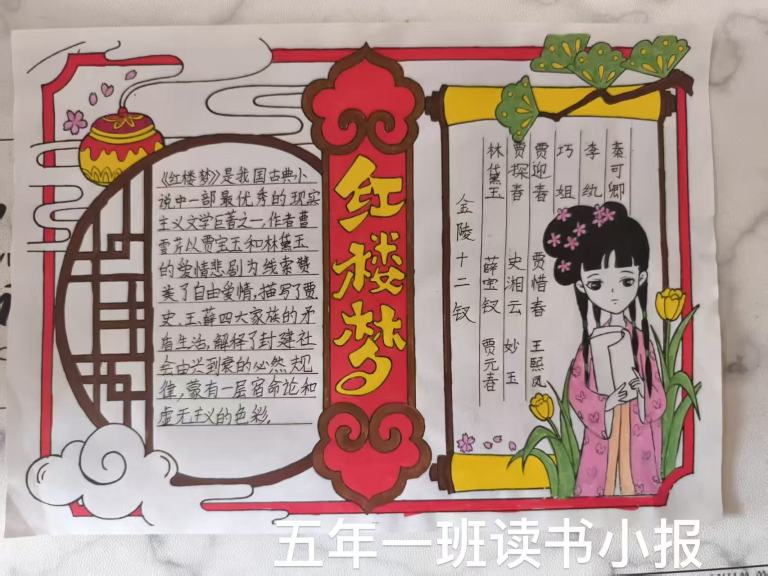 《红楼梦》是我国古典小
说中一部最优秀的现实
主义文学巨著之一,作者曹
雪芹从贾宝玉和林黛玉
的爱情悲剧为线索赞
美了自由爱情,描写了贾
史、王、薛四大家族的矛
盾生活,解释了封建社
会由兴到衰的必然规
律,蒙有一层宿命论和
虚无主义的色彩。
红楼梦
金陵十二钗
林黛玉 薛宝钗 贾元春
贾探春 史湘云 妙玉
贾迎春 贾惜春 王熙凤
巧姐
李纨
秦可卿
五年一班读书小报